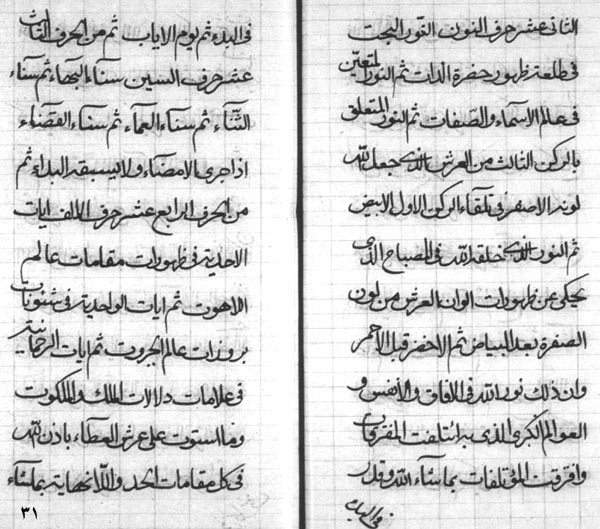 الثانی عشر حرف النون النور البحت
فی طلعة ظهور حضرة الذات ثم النور المتعین
فی عالم الاسماء و الصفات ثم النور المتعلق
بالرکن الثالث من العرش الذی جعل الله
لونه الاصفر فی تلقاء الرکن الاول الابیض
ثم النور الذی خلقه الله فی المصباح الذی
یحکی عن ظهورات الوان العرش من لون
الصفرة بعد البیاض ثم الاخضر قبل الاحمر
و ان ذلک نور الله فی الافاق و الانفس و
العوالم الکبری الذی به ائتلفت المفترقات
و افترقت المؤتلفات بما شاء الله و قدر
فی البدء
فی البدء ثم یوم الایاب ثم من الحرف الثالث
عشر حرف السین سناء البهاء ثم سناء
الثناء ثم سناء العماء ثم سناء القضاء
اذا جری بالامضاء و لا یسبقه البداء ثم
من الحرف الرابع عشر حرف الالف ایات
الاحدیة فی ظهورات مقامات عالم
اللاهوت ثم ایات الواحدیة فی شئونات
بروزات عالم الجبروت ثم ایات الرحمانیة
فی علامات دلالات الملک و الملکوت
و ما استوت علی عرش العطاء باذن الله
فی کل مقامات الحد و اللانهایة بما شاء
۳۱